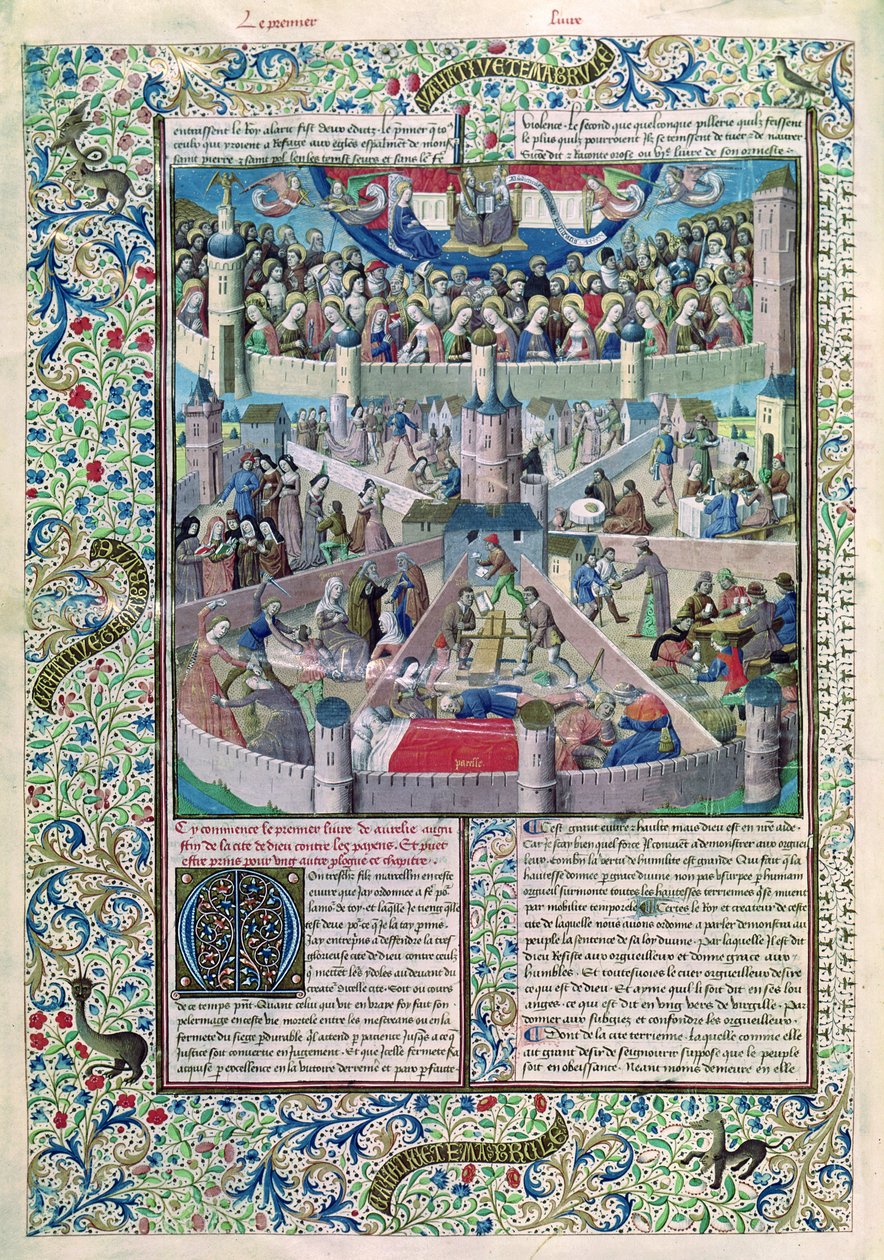 Le premier livre
entrassent le Roy alaric fist deux editz. Le premier q̃ to
ceulx qui yroient a Refuge aux eglises espalment de mons
saint pierre & saint pol len les tenist seurs et sans le fe
violence. Le second que quelconque pillerie quilz feissent
le plus quilz pourroient Ilz se tenissent de tuer & de naurer
Si cõe dit & raconte orose ou vij.e livre de son ormeste.
paresse.
Cy commence le premier livre de aurelie augu
stin de la cite de dieu contre les payens. Et puet
estre prins pour vng autre plogue ce chapitre.
Mon treschr filz marcellin en ceste
euvre que Jay ordonnee a fẽ po᷑
lamo᷑ de toy. et laq̃lle Je tieng q̃lle
test deue po᷑ce q̃ Je la tay pmis.
Jay entrepris a deffendre la tres
glorieuse cite de dieu contre ceulx
q̃ mettẽt les ydoles au devant du
createur dicelle cite. Soit ou cours
de ce temps pñt. Quant celui qui vit en vraye foy fait son
pelermage en ceste vie mortele entre les mescreans ou en la
fermete du siege pdurable q̃l attend p patience Jusq̃s a ce q̃
Justice soit convertie en Jugement. Et que Jcelle fermete sa
acquise p excellence en la victoire derreniere et paix p faute
C'est grant euvre & haulte mais dieu est en nr̃e aide.
Car Je scay bien quel force Il convient a demonstrer aux orgueil
leux. combiẽ la vertu de humilite est grande Qui fait q̃ la
haultesse donnee p grace divine non pas vsurpee p humain
orgueil surmonte toutes les haultesses terriennes q̃ se muent
par mobilite temporele. Certes le Roy et createur de ceste
cite de laquelle nous avons ordonne a parler demonstra au
peuple la sentence de sa loy divine. Par laquelle Il est dit
Dieu Resiste aux orgueilleux et donne grace aux
humbles. Et toutesfoies le cuer orgueilleux desire
ce qui est de dieu. Et ayme qui li soit dit en ses lou
anges. ce qui est dit en vng vers de virgille. Par
donner aux subgiez et confondre les orgueilleux.
Dont de la cite terrienne. Laquelle comme elle
ait grant desir de seignourir suppose que le peuple
soit en obeissance. Neant moins demeure en elle